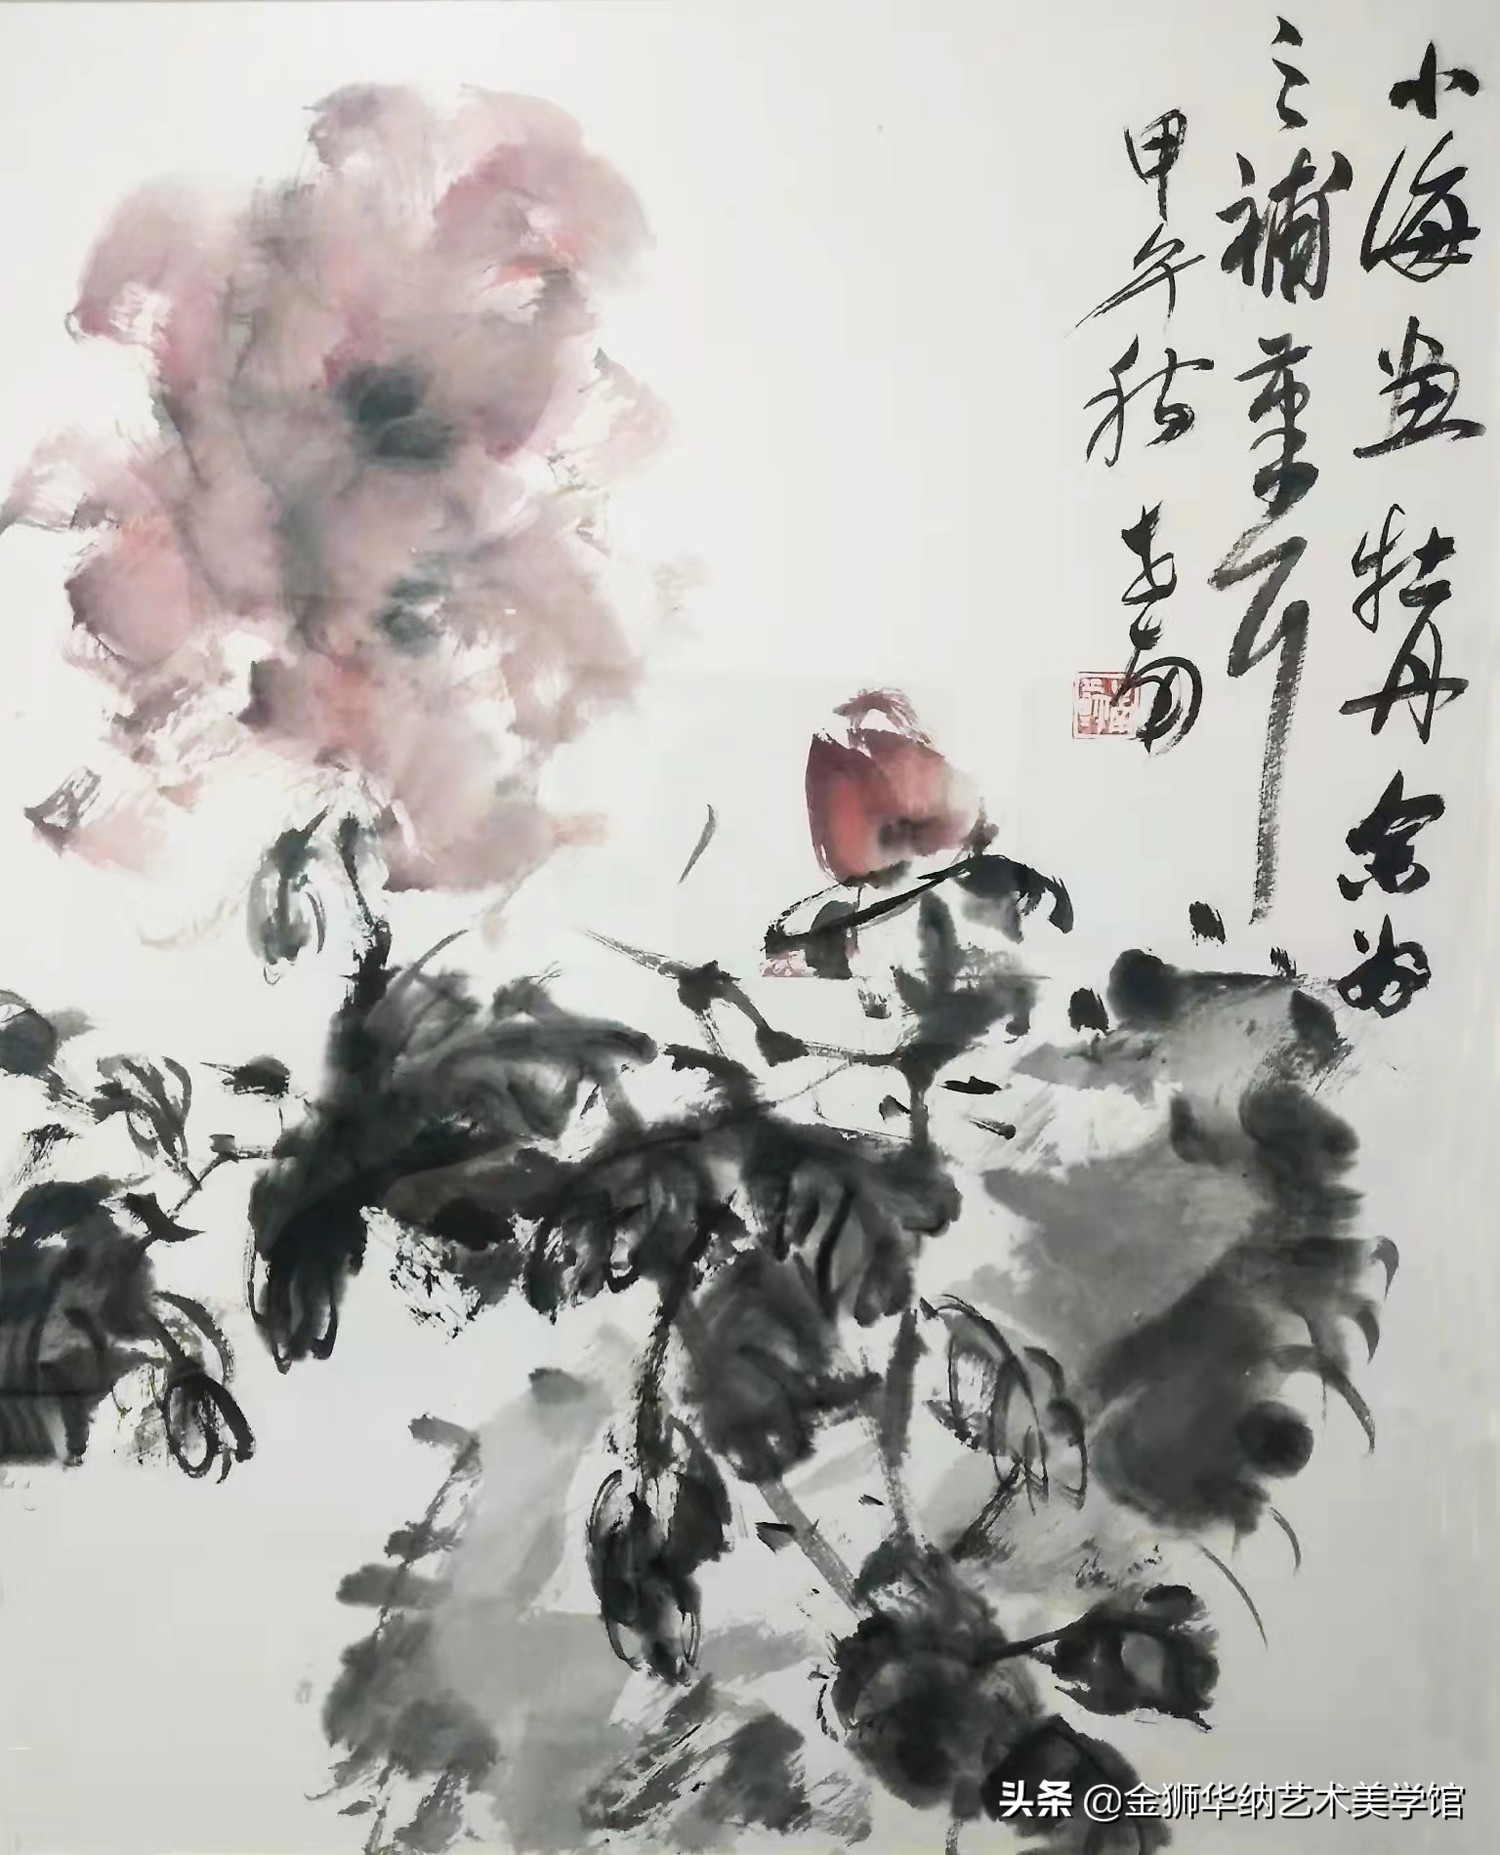 小海画牡丹余为
之補
甲午秋
头条 @金狮华纳艺术美学馆